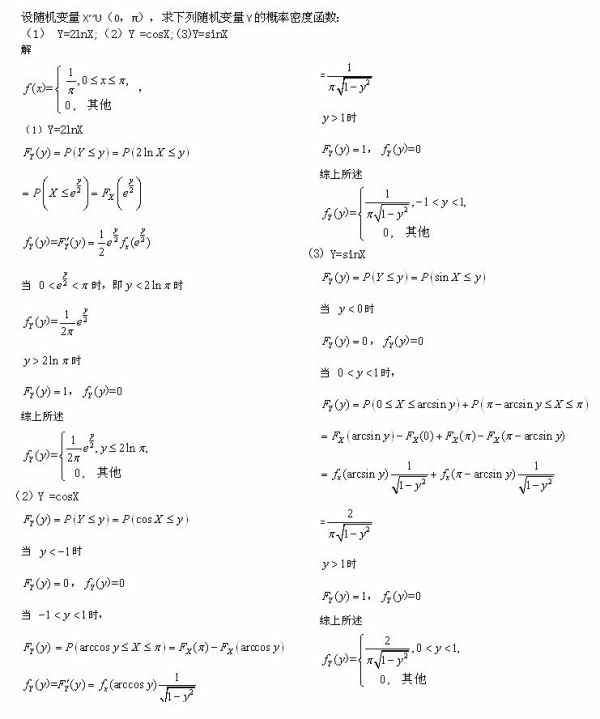 设随机变量X~U（0, π）, 求下列随机变量Y的概率密度函数:
（1） Y=2lnX;（2）Y =cosX;(3)Y=sinX
解
f(x)={1/π, 0≤x≤π, 0, 其他 ,
（1）Y=2lnX
F_Y(y)=P(Y≤y)=P(2lnX≤y)
=P(X≤e^{y/2})=F_X(e^{y/2})
f_Y(y)=F_Y'(y)=1/2 e^{y/2} f_x(e^{y/2})
当 0<e^{y/2}<π时, 即 y<2lnπ时
f_Y(y)=1/(2π) e^{y/2}
y>2lnπ时
F_Y(y)=1, f_Y(y)=0
综上所述
f_Y(y)={1/(2π) e^{y/2}, y≤2lnπ, 0, 其他
（2）Y =cosX
F_Y(y)=P(Y≤y)=P(cosX≤y)
当 y<-1时
F_Y(y)=0, f_Y(y)=0
当 -1<y<1时,
F_Y(y)=P(arccos y≤X≤π)=F_X(π)-F_X(arccos y)
f_Y(y)=F_Y'(y)=f_x(arccos y) 1/√(1-y²)
=1/(π√(1-y²))
y>1时
F_Y(y)=1, f_Y(y)=0
综上所述
f_Y(y)={1/(π√(1-y²)), -1<y<1, 0, 其他
(3) Y=sinX
F_Y(y)=P(Y≤y)=P(sinX≤y)
当 y<0时
F_Y(y)=0, f_Y(y)=0
当 0<y<1时,
F_Y(y)=P(0≤X≤arcsin y)+P(π-arcsin y≤X≤π)
=F_X(arcsin y)-F_X(0)+F_X(π)-F_X(π-arcsin y)
=f_x(arcsin y) 1/√(1-y²)+f_x(π-arcsin y) 1/√(1-y²)
=2/(π√(1-y²))
y>1时
F_Y(y)=1, f_Y(y)=0
综上所述
f_Y(y)={2/(π√(1-y²)), 0<y<1, 0, 其他